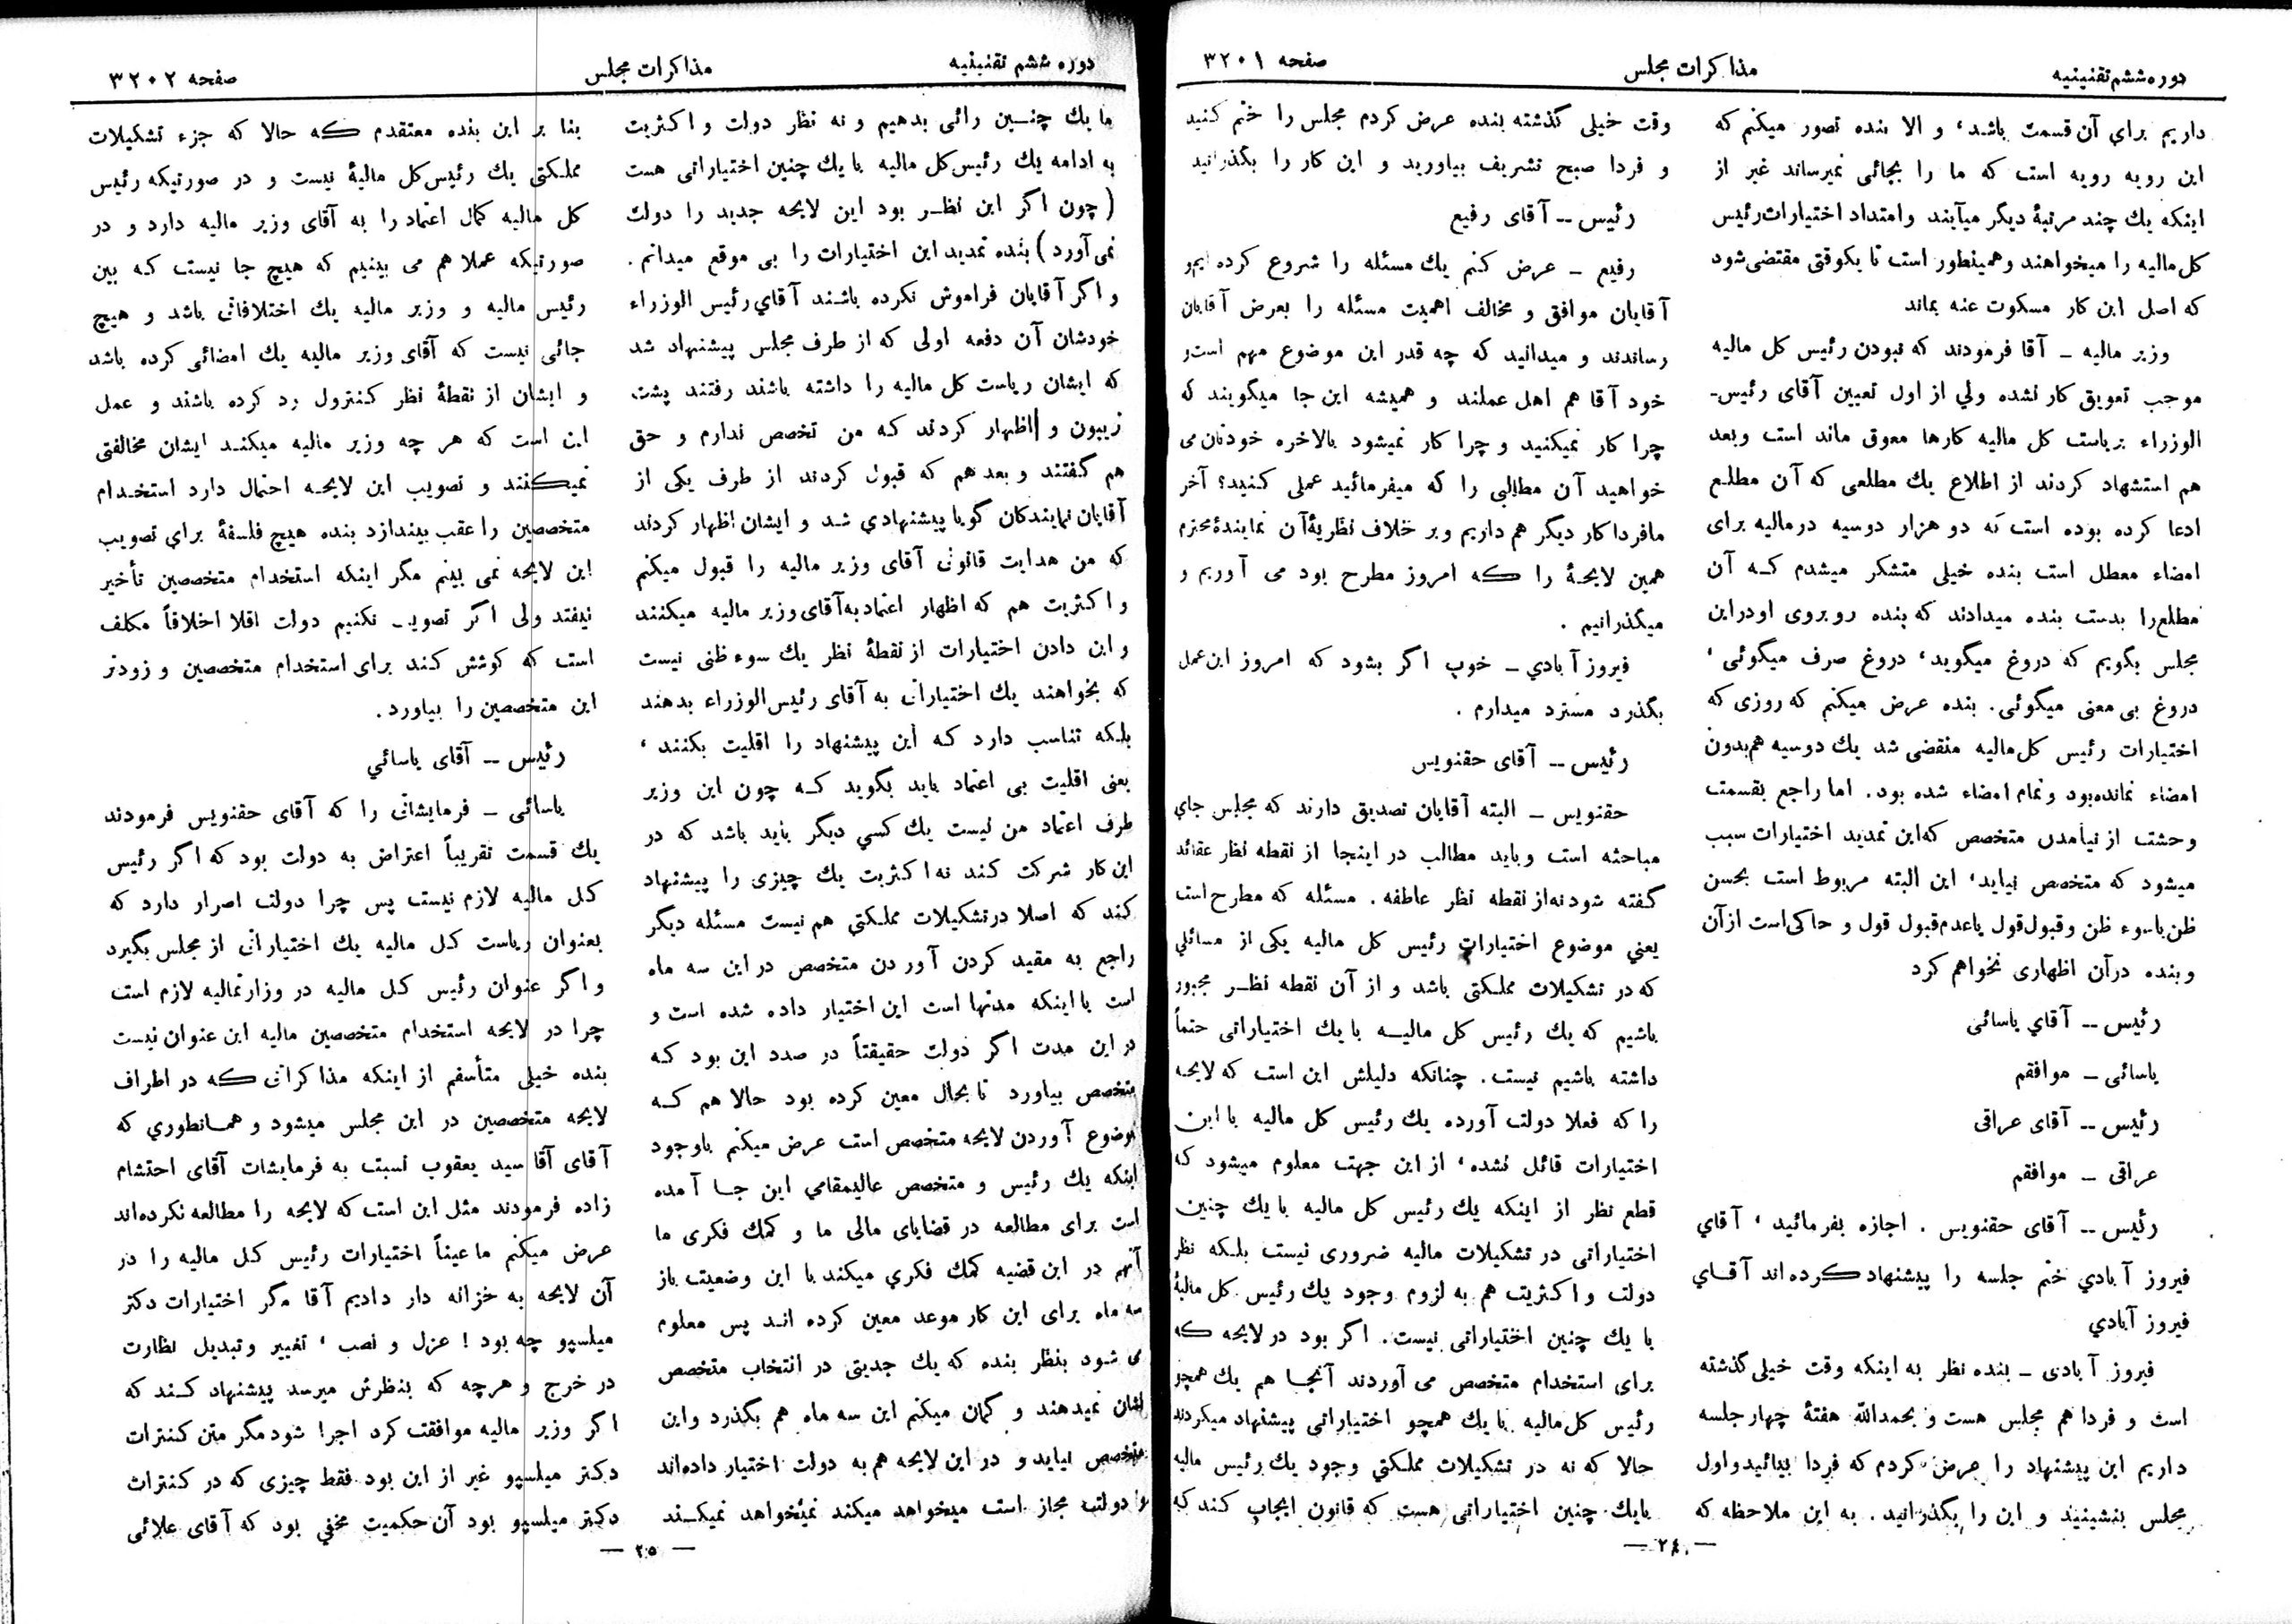 دوره ششم تقنینیه
مذاکرات مجلس
صفحه ۳۲۰۱
داریم برای آن قسمت باشد، و الا بنده تصور میکنم که
این رویه رویه است که ما را بجائی نمیرساند غیر از
اینکه یك چند مرتبهٔ دیگر میآیند و امتداد اختیارات رئیس
کل مالیه را میخواهند و همینطور است تا یکوقتی مقتضی شود
که اصل این کار مسکوت عنه بماند
وزیر مالیه ـ آقا فرمودند که نبودن رئیس کل مالیه
موجب تعویق کار نشده ولي از اول تعیین آقای رئیس-
الوزراء بریاست کل مالیه کارها معوق ماند است وبعد
هم استشهاد کردند از اطلاع یك مطلعی که آن مطلع
ادعا کرده بوده است که دو هزار دوسیه درمالیه برای
امضاء معطل است بنده خیلی متشکر میشدم کـه آن
مطلع را بدست بنده میدادند که بنده رو بروی او دراین
مجلس بگویم که دروغ میگوید، دروغ صرف میگوئی،
دروغ بی معنی میگوئی. بنده عرض میکنم که روزی که
اختیارات رئیس کل مالیه منقضی شد یك دوسیه هم بدون
امضاء نمانده بود و تمام امضاء شده بود. اما راجع بقسمت
وحشت از نیامدن متخصص که این تمدید اختیارات سبب
میشود که متخصص نیاید، این البته مربوط است بحسن
ظن یا سوء ظن و قبول قول یا عدم قبول قول و حاکی است از آن
و بنده درآن اظهاری نخواهم کرد
رئیس -- آقای یاسائی
یاسائی ـ موافقم
رئیس -- آقای عراقی
عراقی ـ موافقم
رئیس -- آقای حقنویس . اجازه بفرمائید، آقای
فیروز آبادي ختم جلسه را پیشنهاد کرده اند آقـای
فیروز آبادي
فیروز آبادی ـ بنده نظر به اینکه وقت خیلی گذشته
است و فردا هم مجلس هست و بحمدالله هفتهٔ چهار جلسه
داریم این پیشنهاد را عرض کردم که فردا بیائید و اول
مجلس بنشینید و این را بگذرانید. به این ملاحظه که
وقت خیلی گذشته بنده عرض کردم مجلس را ختم کنید
و فردا صبح تشریف بیاورید و این کار را بگذرانید
رئیس -- آقای رفیع
رفیع ـ عرض کنم یك مسئله را شروع کرده ایم و
آقایان موافق و مخالف اهمیت مسئله را بعرض آقایان
رساندند و میدانید که چه قدر این موضوع مهم است و
خود آقا هم اهل عملند و همیشه این جا میگویند که
چرا کار نمیکنید و چرا کار نمیشود بالاخره خودتان می
خواهید آن مطالبی را که میفرمائید عملی کنید؟ آخر
مافردا کار دیگر هم داریم و بر خلاف نظریهٔ آن نمایندهٔ محترم
همین لایحهٔ را کـه امروز مطرح بود می آوریم و
میگذرانیم .
فیروز آبادي ـ خوب اگر بشود که امروز این عمل
بگذرد مسترد میدارم .
رئیس -- آقای حقنویس
حقنویس ـ البته آقایان تصدیق دارند که مجلس جاي
مباحثه است و باید مطالب در اینجا از نقطه نظر عقائد
گفته شود نه از نقطه نظر عاطفه . مسئله که مطرح است
یعني موضوع اختیارات رئیس کل مالیه یکی از مسائلي
که در تشکیلات مملکتی باشد و از آن نقطه نظـر مجبور
باشیم که یك رئیس کل مالیـه با یك اختیاراتی حتماً
داشته باشیم نیست. چنانکه دلیلش این است که لایحه
را که فعلا دولت آورده یك رئیس کل مالیه با این
اختیارات قائل نشده، از این جهت معلوم میشود که
قطع نظر از اینکه یك رئیس کل مالیه با یك چنین
اختیاراتی در تشکیلات مالیه ضروری نیست بلکه نظر
دولت و اکثریت هم به لزوم وجود یك رئیس کل مالیهٔ
با یك چنین اختیاراتی نیست. اگر بود در لایحه که
برای استخدام متخصص می آوردند آنجـا هم یك همچو
رئیس کل مالیه با یك همچو اختیاراتی پیشنهاد میکردند
حالا که نه در تشکیلات مملکتي وجود یك رئیس مالیه
بایك چنین اختیاراتی هست که قانون ایجاب کند که
— ۲٤ —
دوره ششم تقنینیه
مذاکرات مجلس
صفحه ۳۲۰۲
ما یك چنـین رائی بدهیم و نه نظر دولت و اکثریت
به ادامه یك رئیس کل مالیه با یك چنین اختیاراتی هست
( چون اگر این نظـر بود این لایحه جدید را دولت
نمی آورد ) بنده تمدید این اختیارات را بی موقع میدانم .
و اگر آقایان فراموش نکرده باشند آقای رئیس الوزراء
خودشان آن دفعه اولی که از طرف مجلس پیشنهاد شد
که ایشان ریاست کل مالیه را داشته باشند رفتند پشت
تریبون و اظهار کردند کـه من تخصص ندارم و حق
هم گفتند و بعد هم که قبول کردند از طرف یکی از
آقایان نمایندگان گویا پیشنهادي شـد و ایشان اظهار کردند
که من هدایت قانونی آقای وزیر مالیه را قبول میکنم
و اکثریت هم که اظهار اعتماد به آقای وزیر مالیه میکنند
و این دادن اختیارات از نقطهٔ نظر یك سوء ظنی نیست
که بخواهند یك اختیاراتی به آقای رئیس الوزراء بدهند
بلکه تناسب دارد کـه این پیشنهاد را اقلیت بکنند،
یعنی اقلیت بی اعتماد باید بگوید کـه چون این وزیر
طرف اعتماد من نیست یك کسي دیگر باید باشد که در
این کار شرکت کند نه اکثریت یك چیزی را پیشنهاد
کند که اصلا در تشکیلات مملکتي هم نیست مسئله دیگر
راجع به مقید کردن آوردن متخصص در این سه ماه
است با اینکه مدتها است این اختیار داده شده است و
در این مدت اگر دولت حقیقتاً در صدد این بود کـه
متخصص بیاورد تا بحال معین کرده بود حالا هم کـه
موضوع آوردن لایحه متخصص است عرض میکنم باوجود
اینکه یك رئیس و متخصص عالیمقامي این جـا آمده
است برای مطالعه در قضایای مالی ما و کمك فکری ما
آنهم در این قضیه کمك فکري میکند با این وضعیت باز
سه ماه برای این کار موعد معین کرده انـد پس معلوم
می شود بنظر بنده که یك جدیتی در انتخاب متخصص
نشان نمیدهند و گمان میکنم این سه ماه هم بگذرد و این
متخصص نیاید و در این لایحه هم به دولت اختیار داده اند
دولت مجاز است میخواهد میکند نمیخواهد نمیکـند
بنا بر این بنده معتقدم کـه حالا که جزء تشکیلات
مملکتی یك رئیس کل مالیهٔ نیست و در صورتیکه رئیس
کل مالیه کمال اعتماد را به آقای وزیر مالیه دارد و در
صورتیکه عملا هم می بینیم که هیچ جا نیست کـه بین
رئیس مالیه و وزیر مالیه یك اختلافاتی باشد و هیچ
جائی نیست که آقای وزیر مالیه یك امضائی کرده باشد
و ایشان از نقطهٔ نظر کنترول رد کرده باشند و عمل
این است که هر چه وزیر مالیه میکنـد ایشان مخالفتی
نمیکنند و تصویب این لایحه احتمال دارد استخدام
متخصصین را عقب بیندازد بنده هیچ فلسفهٔ برای تصویب
این لایحه نمی بینم مگر اینکه استخدام متخصصین تأخیر
نیفتد ولی اگر تصویب نکنیم دولت اقلا اخلاقاً مکلف
است که کوشش کند برای استخدام متخصصین و زودتر
این متخصصین را بیاورد.
رئیس -- آقای یاسائي
یاسائی ـ فرمایشاتی را که آقای حقنویس فرمودند
یك قسمت تقریباً اعتراض به دولت بود که اگر رئیس
کل مالیه لازم نیست پس چرا دولت اصرار دارد که
بعنوان ریاست کل مالیه یك اختیاراتی از مجلس بگیرد
و اگر عنوان رئیس کل مالیه در وزارتمالیه لازم است
چرا در لایحه استخدام متخصصین مالیه این عنوان نیست
بنده خیلی متأسفم از اینکه مذاکراتی کـه در اطراف
لایحه متخصصین در این مجلس میشود و همـانطوري که
آقای آقا سید یعقوب نسبت به فرمایشات آقای احتشام
زاده فرمودند مثل این است که لایحه را مطالعه نکرده اند
عرض میکنم ما عیناً اختیارات رئیس کل مالیه را در
آن لایحه به خزانه دار دادیم آقا مگر اختیارات دکتر
میلسپو چه بود ! عزل و نصب، تغییر و تبدیل نظارت
در خرج و هرچه که بنظرش میرسد پیشنهاد کـند که
اگر وزیر مالیه موافقت کرد اجرا شود مگر متن کنترات
دکتر میلسپو غیر از این بود فقط چیزی که در کنترات
دکتر میلسپو بود آن حکمیت مخفي بود که آقای علائی
— ۲۵ —